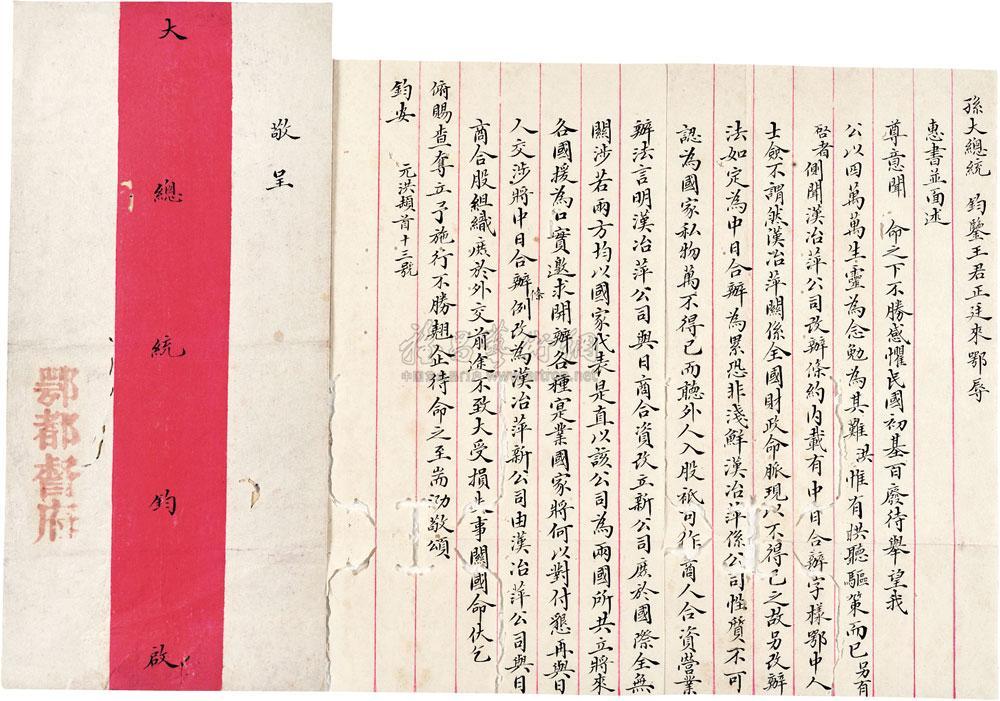 孫大總統 鈞鑒王君正廷來鄂辱
惠書並面述
尊意聞 命之下不勝感懼民國初基百廢待舉望我
公以四萬萬生靈為念勉為其難洪惟有拱聽驅策而已另有
啓者側聞漢冶萍公司改辦條約內載有中日合辦字樣鄂中人
士僉不謂然漢冶萍關係全國財政命脈現以不得已之故另改辦
法如定為中日合辦為累恐非淺鮮漢冶萍係公司性質不可
認為國家私物萬不得已而聽外人入股祇可作商人合資營業
辦法言明漢冶萍公司與日商合資改立新公司庶於國際全無
關涉若兩方均以國家代表是直以該公司為兩國所共立將來
各國援為口實邀求開辦各種寔業國家將何以對付懇再與日
人交涉將中日合辦條例改為漢冶萍新公司由漢冶萍公司與日
商合股組織庶於外交前途不致大受損失事關國命伏乞
俯賜查奪立予施行不勝翹企待命之至耑泐敬頌
鈞安
元洪頓首十三號
敬呈
大總統鈞啟
鄂都督府